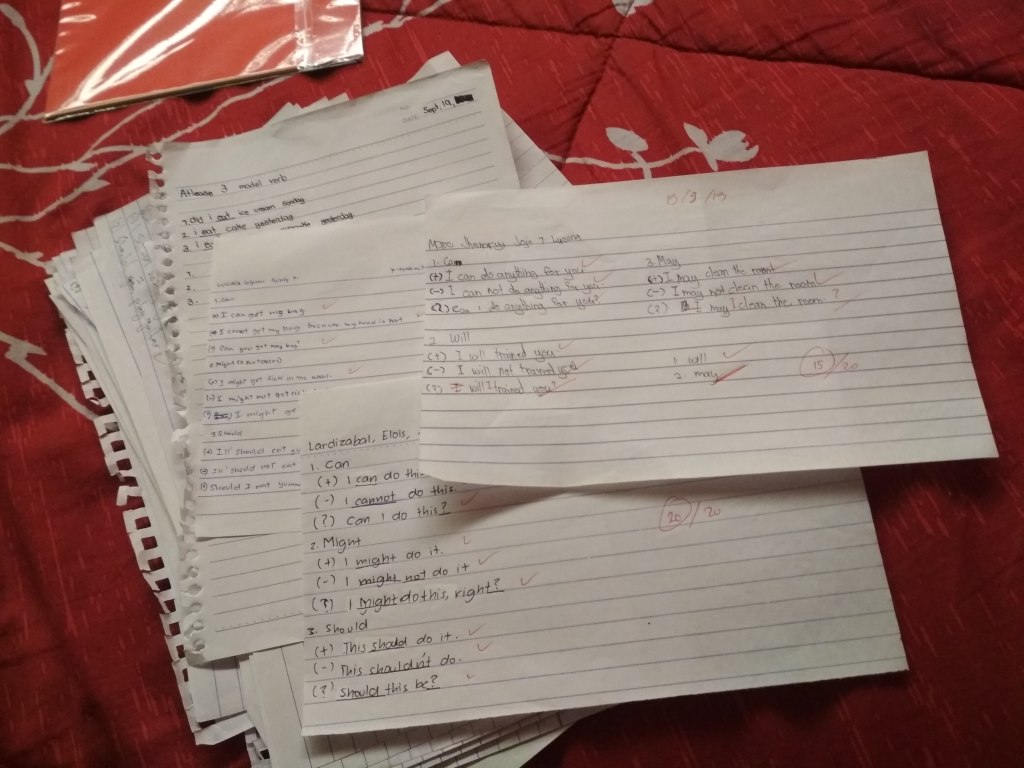 Sept. 19,
Atlease 3 modal verb
1. did I eat ice cream sunday
2. I eat cake yesterday.
3. I
yesterday.
1.
2.
3.
1. Can
I can get my bag
I cannot get my bag because my head is
(?) Can you get my bag?
2. Might
(+) I might get sick in the
(-) I might not get
(?) I might ge
3. Should
(+) I'll should eat
(-) I'll should not eat
(?) Should I eat
Lardizabal, Elois,
1. Can
(+) I can do this
(-) I cannot do this.
(?) Can I do this?
2. Might
(+) I might do it.
(-) I might not do it
(?) I Might do this, right?
3. Should
(+) This should do it.
(-) This shouldn't do.
(?) Should this be?
20/20
1. Can
(+) I can do anything for you
(-) I can not do anything for you.
(?) Can I do anything for you?
2. Will
(+) I will trained you
(-) I will not trained you
(?) I will I trained you?
3. May
(+) I may clean the room
(-) I may not clean the room
(?) I may I clean the room. ?
1. will
2. may
15/20